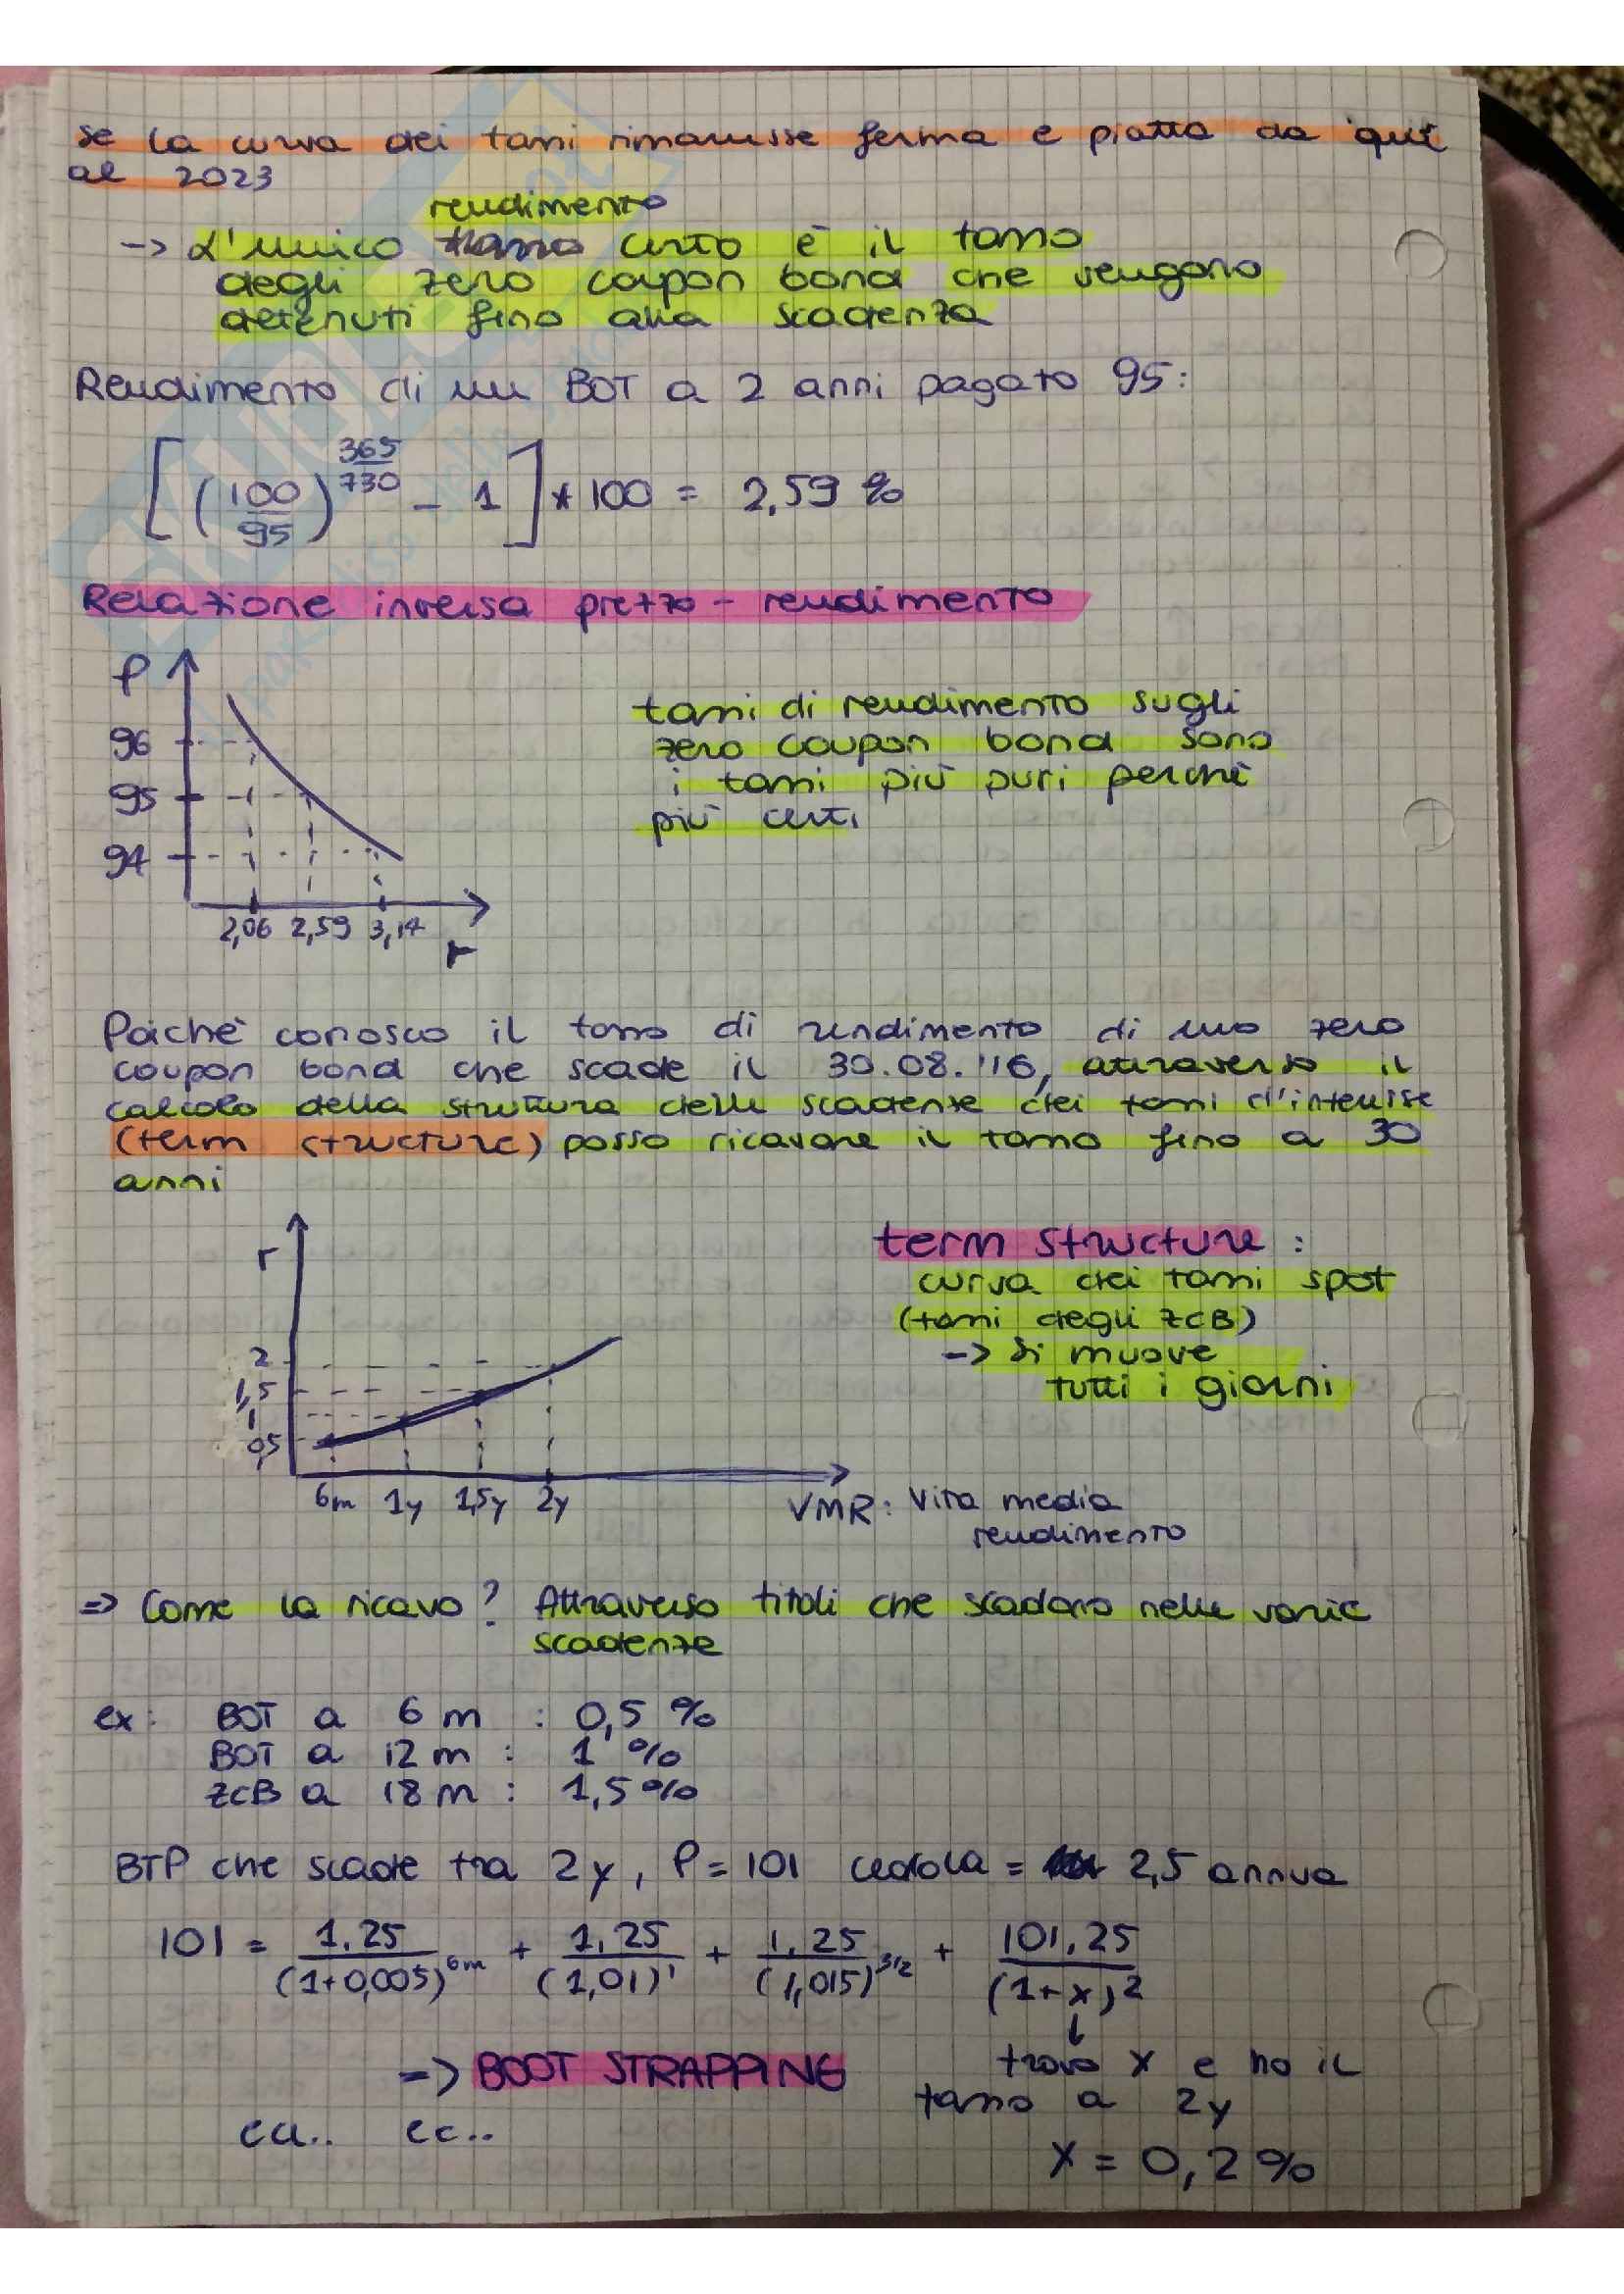 se la curva dei tassi rimanesse ferma e piatta da qui
al 2023
rendimento
-> L'unico tasso certo è il tasso
degli zero coupon bond che vengono
detenuti fino alla scadenza
Rendimento di un BOT a 2 anni pagato 95:
[(100/95)^(365/730) - 1] * 100 = 2,59 %
Relazione inversa prezzo - rendimento
P
96
95
94
2,06 2,59 3,14
r
tassi di rendimento sugli
zero coupon bond sono
i tassi più puri perchè
più certi
Poichè conosco il tasso di rendimento di uno zero
coupon bond che scade il 30.08.'16, attraverso il
calcolo della struttura delle scadenze dei tassi d'interesse
(term structure) posso ricavare il tasso fino a 30
anni
r
2
1,5
1
0,5
6m 1y 1,5y 2y
VMR: Vita media
rendimento
term structure :
curva dei tassi spot
(tassi degli ZCB)
-> si muove
tutti i giorni
=> Come la ricavo? Attraverso titoli che scadono nelle varie
scadenze
ex: BOT a 6 m : 0,5 %
BOT a 12 m : 1 %
ZCB a 18 m : 1,5 %
BTP che scade tra 2y, P = 101 cedola = 2,5 annua
101 = 1,25/(1+0,005)^6m + 1,25/(1,01)^1 + 1,25/(1,015)^3/2 + 101,25/(1+x)^2
=> BOOT STRAPPING
trovo x e ho il
tasso a 2y
ec..
x = 0,2 %